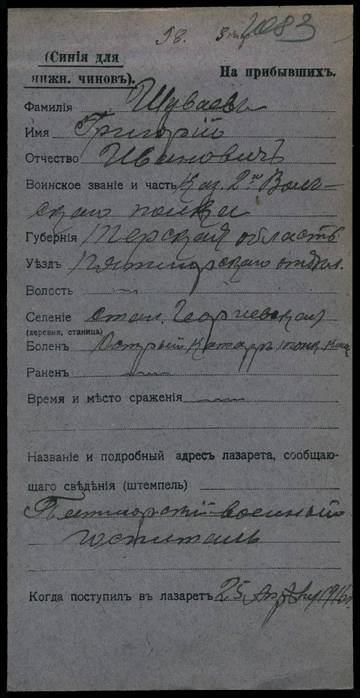 2083
(Синія для
нижн. чиновъ).
На прибывшихъ.
Фамилія Шуваевъ
Имя Григорій
Отчество Ивановичъ
Воинское званіе и часть каз. 2го Волг-
скаго полка
Губернія Терская область
Уѣздъ Пятигорскаго отдѣл.
Волость
Селеніе Стан. Георгіевская
(деревня, станица)
Боленъ Острый катарръ тонк. киш.
Раненъ
Время и мѣсто сраженія
Названіе и подробный адресъ лазарета, сообщаю-
щаго свѣдѣнія (штемпель)
Пятигорскій военный
госпиталь
Когда поступил въ лазаретъ 25 1916 г.